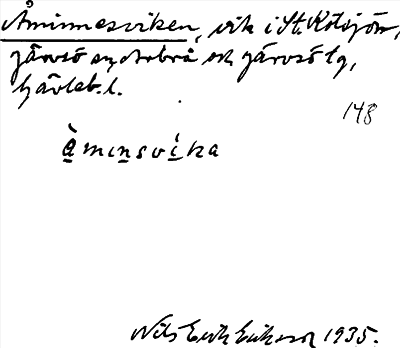 Åminnesviken, vik i St. Kölsjön,
Järvsö sn, Arbrå ok Järvsö tg,
Gävleb. l.
148
åminsvika
Nils Erik Eriksson 1935.